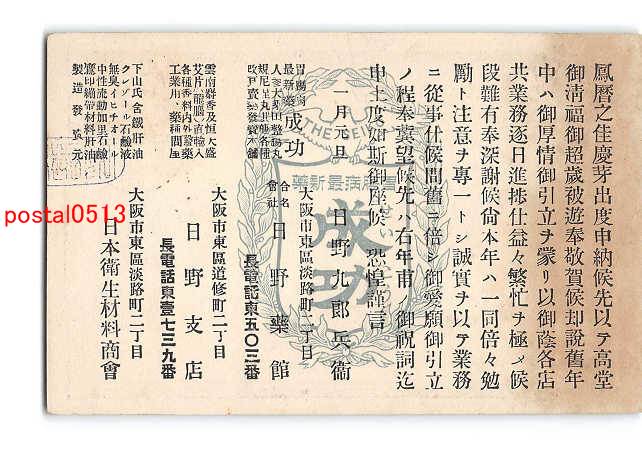 鳳曆之佳慶芽出度申納候先以テ高堂
御淸福御超歲被遊奉敬賀候却說舊年
中ハ御厚情御引立ヲ蒙リ以御蔭各店
共業務逐日進捗仕益々繁忙ヲ極メ候
段難有奉深謝候尙本年ハ一同倍々勉
勵ト注意ヲ專一トシ誠實ヲ以テ業務
ニ從事仕候間舊ニ倍シ御愛顧御引立
ノ程奉冀望候先ハ右年甫ノ御祝詞迄
申上度如斯御座候 恐惶謹言
一月元旦 日野九郎兵衞
胃腸病最新藥
成功
大阪市東區淡路町二丁目
合名會社 日野藥館
長電話東五〇三番
雲南麝香及恒大盛
艾片龍腦直輸入
各種香料內外藥
工業用藥種問屋
大阪市東區道修町二丁目
日野支店
長電話東壹七三九番
下山氏含鐵肝油
クレゾール石鹼液
無臭イヒチオール
中性流動加里石鹼
鷹印繃帶材料肝油
製造發賣元
大阪市東區淡路町二丁目
日本衞生材料商會
胃腸病最新藥
成功
postal0513